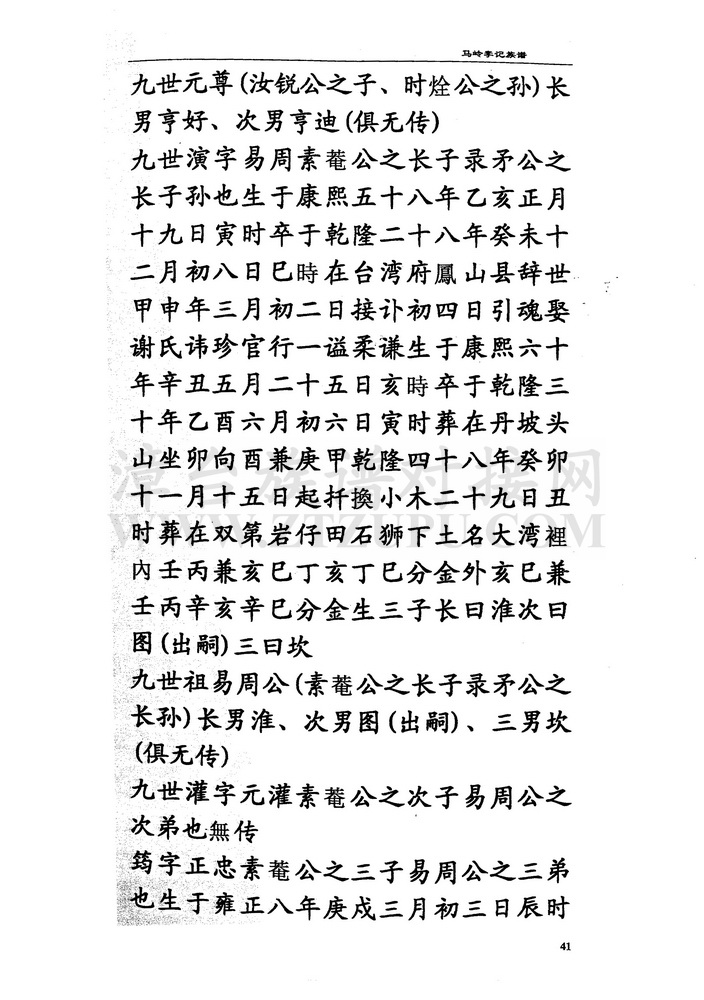 马岭李记族谱
九世元尊(汝锐公之子、时烇公之孙)长
男亨好、次男亨迪(俱无传)
九世演字易周素菴公之长子录矛公之
长子孙也生于康熙五十八年乙亥正月
十九日寅时卒于乾隆二十八年癸未十
二月初八日巳時在台湾府鳳山县辞世
甲申年三月初二日接讣初四日引魂娶
谢氏讳珍官行一谥柔谦生于康熙六十
年辛丑五月二十五日亥時卒于乾隆三
十年乙酉六月初六日寅时葬在丹坡头
山坐卯向酉兼庚甲乾隆四十八年癸卯
十一月十五日起扦換小木二十九日丑
时葬在双第岩仔田石狮下土名大湾裡
內壬丙兼亥巳丁亥丁巳分金外亥巳兼
壬丙辛亥辛巳分金生三子长曰淮次曰
图(出嗣)三曰坎
九世祖易周公(素菴公之长子录矛公之
长孙)长男淮、次男图(出嗣)、三男坎
(俱无传)
九世灌字元灌素菴公之次子易周公之
次弟也無传
筠字正忠素菴公之三子易周公之三弟
也生于雍正八年庚戍三月初三日辰时
41
漳台族谱对接网
WWW.ZTZUPU.COM